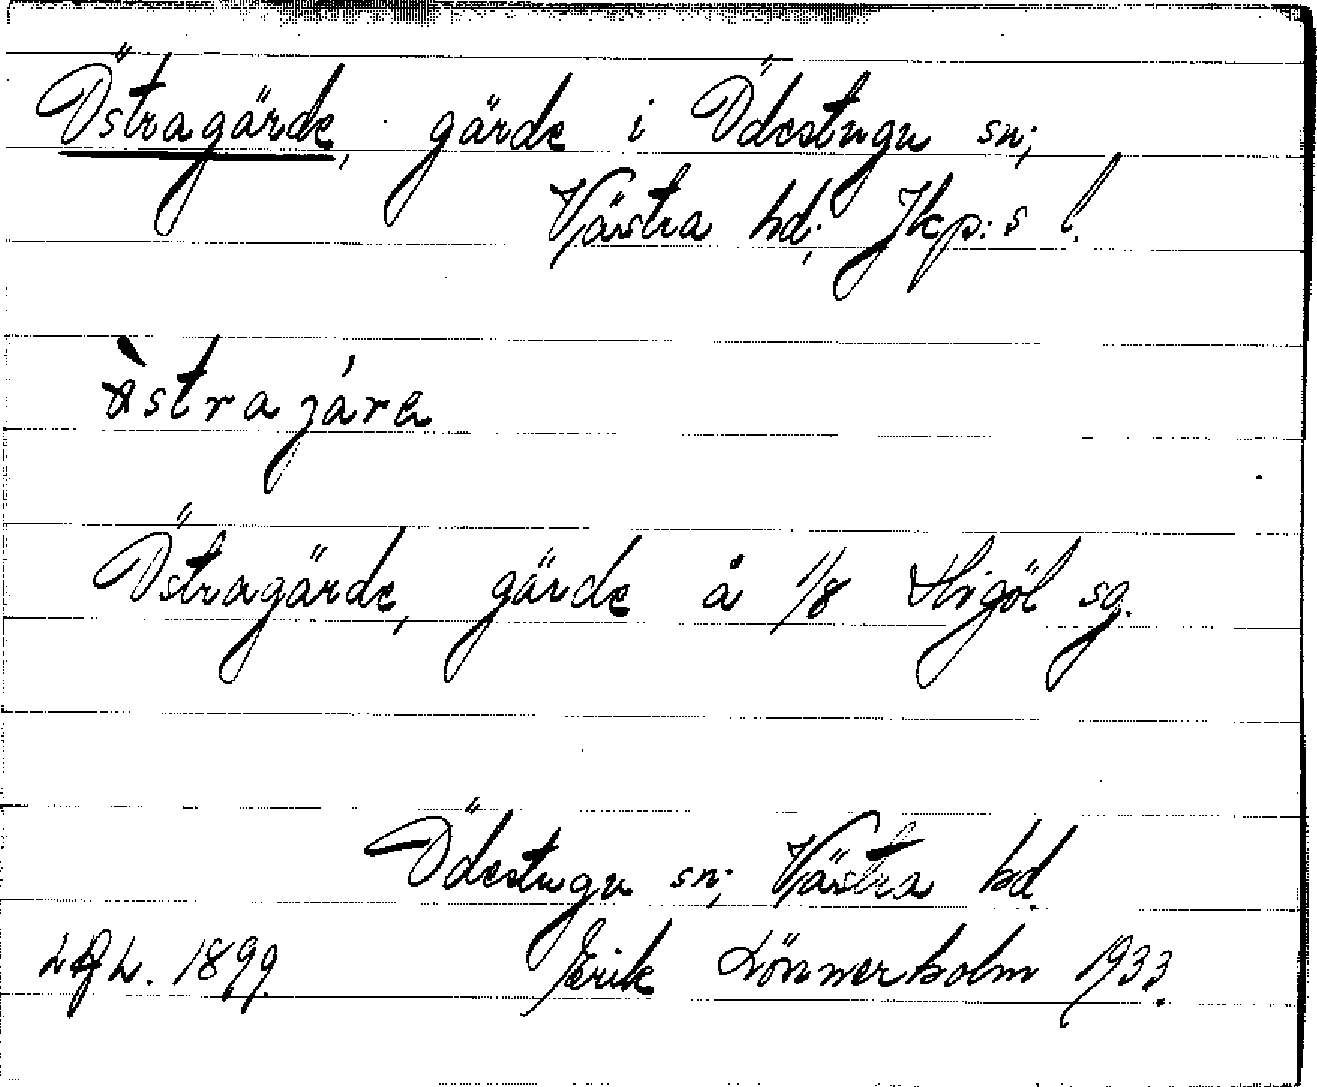 Östragärde, gärde i Ödestugu sn;
Västra hd; Jkp:s l.
Östragärde, gärde å 1/8 Stigöl sg.
Ödestugu sn; Västra hd.
1899. Erik Lönnerholm 1933.